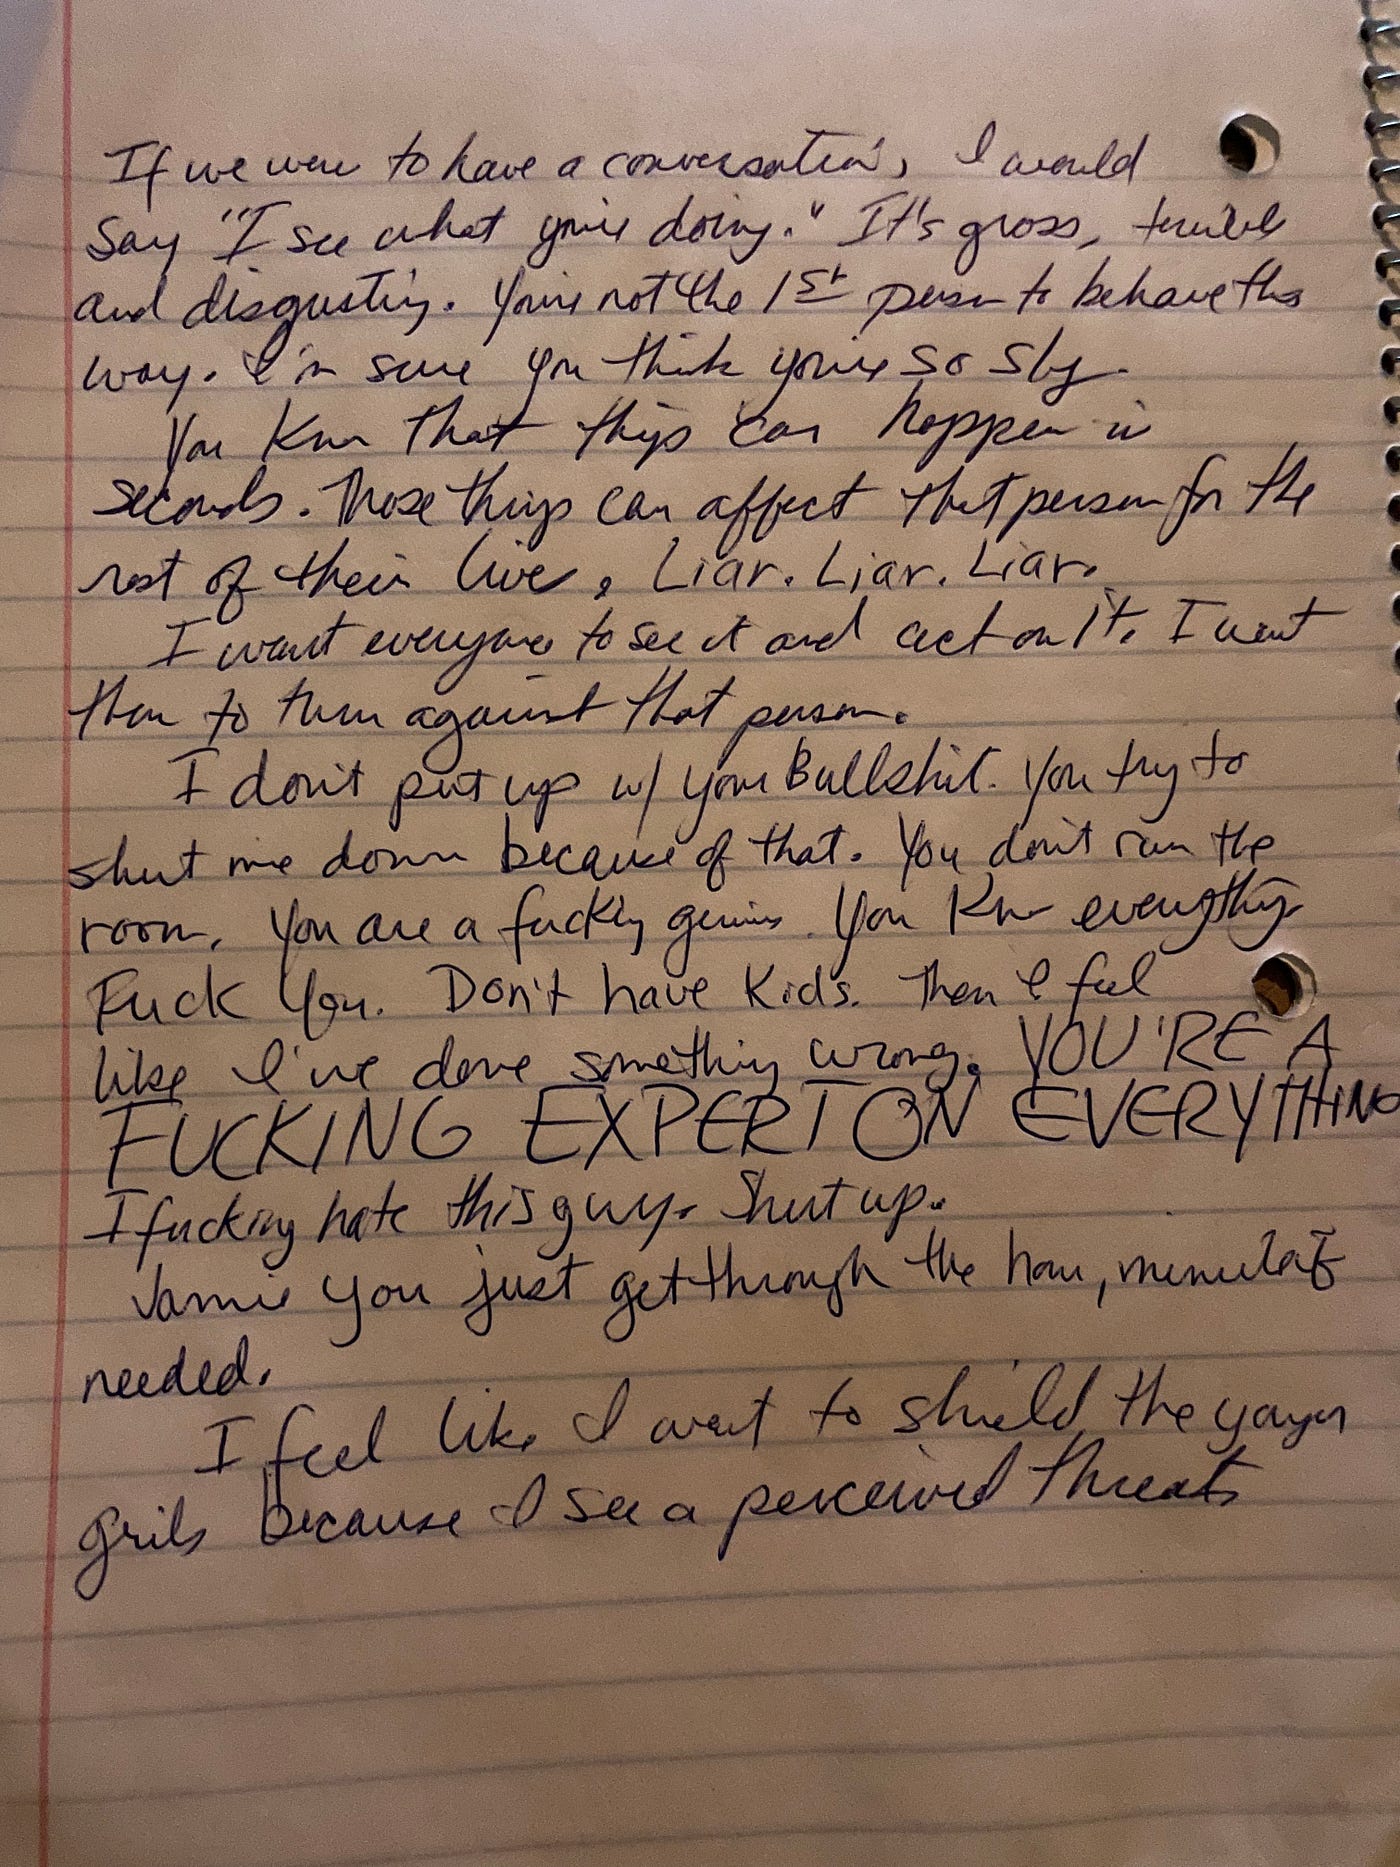 If we were to have a conversation, I would
say "I see what you're doing." It's gross, terrible
and disgusting. You're not the 1st person to behave this
way. I'm sure you think you're so sly.
You know that things can happen in
seconds. Those things can affect that person for the
rest of their live, Liar. Liar. Liar.
I want everyone to see it and act on it. I want
them to turn against that person.
I don't put up w/ your Bullshit. You try to
shut me down because of that. You don't run the
room. You are a fucking genius. You know everything
Fuck You. Don't have kids. Then I feel
like I've done something wrong. YOU'RE A
FUCKING EXPERT ON EVERYTHING
I fucking hate this guy. Shut up.
Jamie you just get through the hour, minute if
needed.
I feel like I want to shield the younger
grils because I see a perceived threats